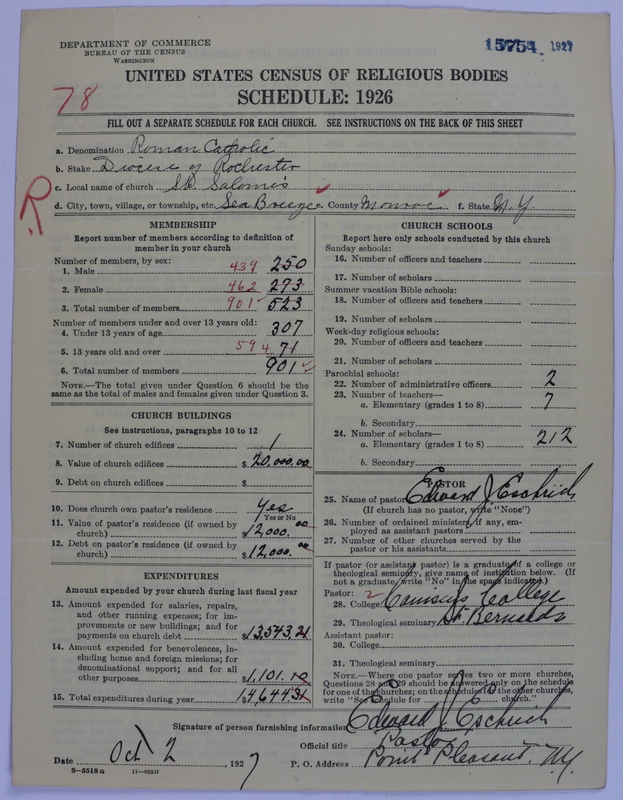 DEPARTMENT OF COMMERCE
BUREAU OF THE CENSUS
WASHINGTON
15754 1927
UNITED STATES CENSUS OF RELIGIOUS BODIES
SCHEDULE: 1926
78
FILL OUT A SEPARATE SCHEDULE FOR EACH CHURCH. SEE INSTRUCTIONS ON THE BACK OF THIS SHEET
a. Denomination Roman Catholic
b. Stake Diocese of Rochester
c. Local name of church St. Salome's
R
d. City, town, village, or township, etc. Sea Breeze e. County Monroe f. State N.Y.
MEMBERSHIP
Report number of members according to definition of member in your church
Number of members, by sex:
1. Male 439 250
2. Female 462 273
3. Total number of members 901 523
Number of members under and over 13 years old:
4. Under 13 years of age 307
5. 13 years old and over 594 71
6. Total number of members 901
NOTE.—The total given under Question 6 should be the same as the total of males and females given under Question 3.
CHURCH BUILDINGS
See instructions, paragraphs 10 to 12
7. Number of church edifices 1
8. Value of church edifices $20,000.00
9. Debt on church edifices $
10. Does church own pastor's residence Yes
Yes or No
11. Value of pastor's residence (if owned by church) $12,000.00
12. Debt on pastor's residence (if owned by church) $12,000.00
EXPENDITURES
Amount expended by your church during last fiscal year
13. Amount expended for salaries, repairs, and other running expenses; for improvements or new buildings; and for payments on church debt $13,543.21
14. Amount expended for benevolences, including home and foreign missions; for denominational support; and for all other purposes $1,101.10
15. Total expenditures during year 14,644.31
CHURCH SCHOOLS
Report here only schools conducted by this church
Sunday schools:
16. Number of officers and teachers
17. Number of scholars
Summer vacation Bible schools:
18. Number of officers and teachers
19. Number of scholars
Week-day religious schools:
20. Number of officers and teachers
21. Number of scholars
Parochial schools:
22. Number of administrative officers 2
23. Number of teachers—
a. Elementary (grades 1 to 8) 7
b. Secondary
24. Number of scholars—
a. Elementary (grades 1 to 8) 212
b. Secondary
PASTOR
25. Name of pastor Edward J. Eschrich
(If church has no pastor, write "None")
26. Number of ordained ministers, if any, employed as assistant pastors
27. Number of other churches served by the pastor or his assistants
If pastor (or assistant pastor) is a graduate of a college or theological seminary, give name of institution below. (If not a graduate, write "No" in the space indicated.)
Pastor: 2
28. College Canisius College
29. Theological seminary St. Bernards
Assistant pastor:
30. College
31. Theological seminary
NOTE.—Where one pastor serves two or more churches, Questions 28 and 29 should be answered only on the schedule for one of the churches; on the schedules for the other churches, write "See schedule for church."
Signature of person furnishing information Edward J. Eschrich
Official title Pastor
Date Oct 2, 1927 P. O. Address Point Pleasant, N.Y.
8—5518a 11—9951f